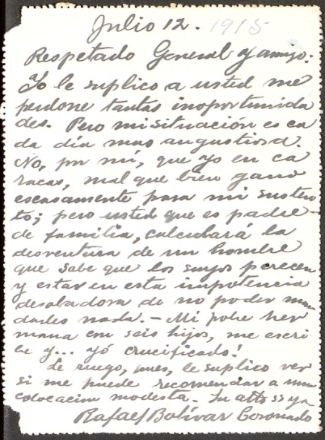 Julio 12. 1915
Respetado General y amigo:
Yo le suplico a usted me
perdone tantas inoportunida
des. Pero mi situación es ca
da dia mas angustiosa.
No, por mi, que yo en Ca
racas, mal que bien gano
escasamente para mi susten
to; pero usted que es padre
de familia, calculará la
desventura de un hombre
que sabe que los suyos perecen
y estar en esta impotencia
desoladora de no poder man
darles nada. - Mi pobre her
mana con seis hijos, me escri
be y... yó crucificado!
Le ruego, pues, le suplico ver
si me puede recomendar a una
colocacion modesta. Su atto ss y a
Rafael Bolívar Coronado